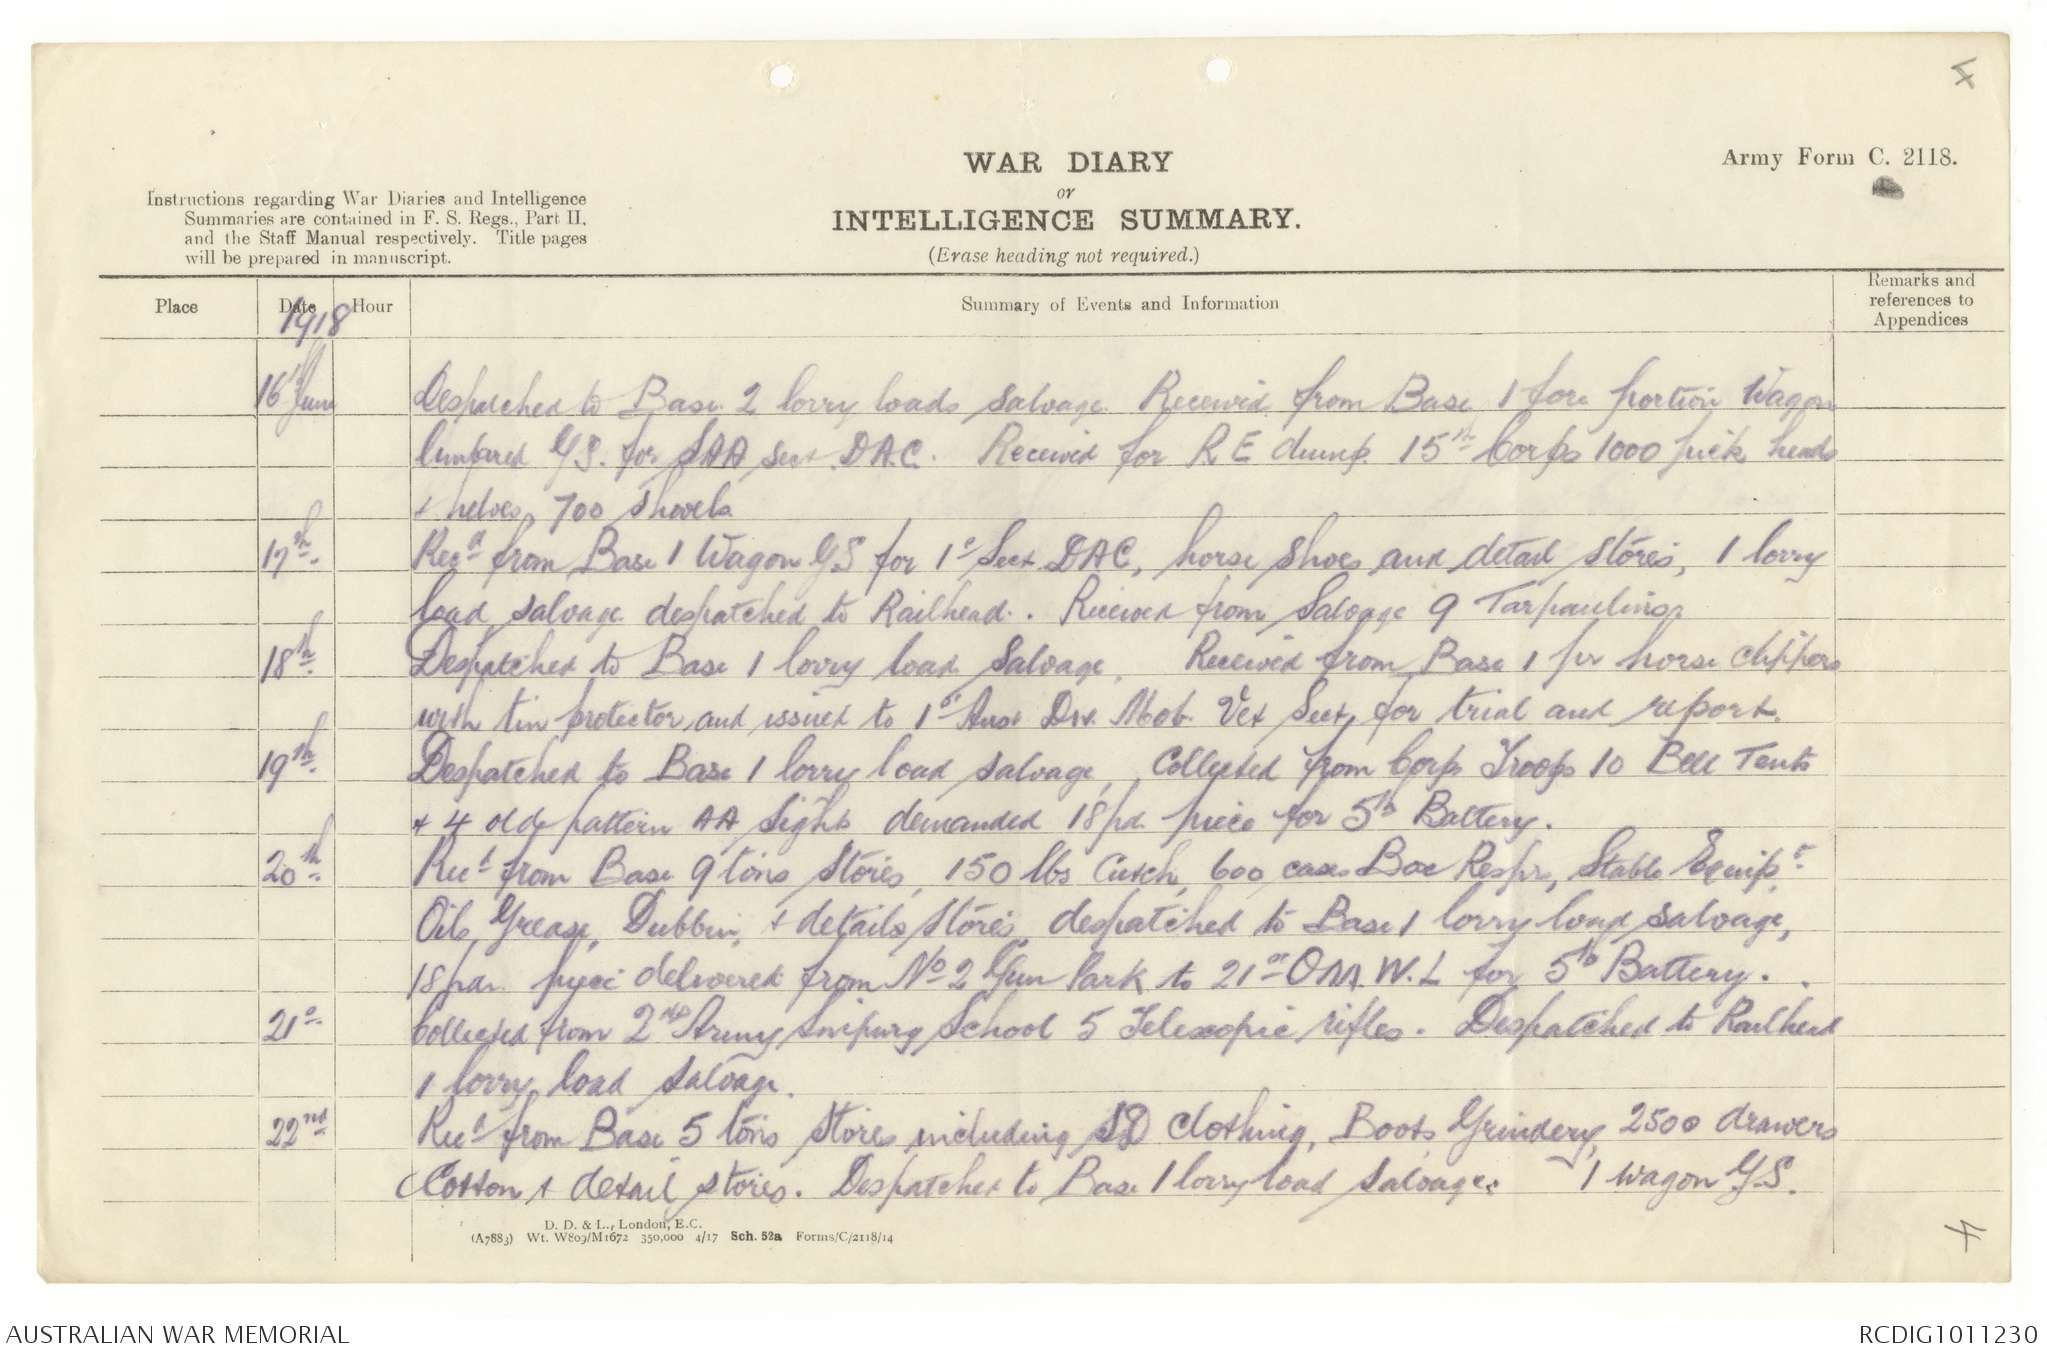 4
Army Form C. 2118.
WAR DIARY
or
INTELLIGENCE SUMMARY.
(Erase heading not required.)
Instructions regarding War Diaries and Intelligence
Summaries are contained in F. S. Regs., Part II.
and the Staff Manual respectively. Title pages
will be prepared in manuscript.
Place Date Hour Summary of Events and Information Remarks and references to Appendices
1918
16th June Despatched to Base 2 lorry loads salvage. Received from Base 1 fore portion Wagon
limbered G.S. for SAA Sect. D.A.C. Received for R E dump 15th Corps 1000 pick heads
+ helves, 700 shovels
17th Recd from Base 1 Wagon GS for 1st Sect DAC, horse shoes and detail stores, 1 lorry
load salvage despatched to Railhead. Received from Salvage 9 Tarpaulins
18th Despatched to Base 1 lorry load Salvage. Received from Base 1 pr horse clippers
with tin protector and issued to 1st Aust Div. Mob. Vet Sect, for trial and report.
19th Despatched to Base 1 lorry load salvage, Collected from Corps Troops 10 Bell Tents
+ 4 old pattern AA Sights demanded 18pd. piece for 5th Battery.
20th Recd from Base 9 tons Stores, 150 lbs Cutch, 600 cases Box Resprs, Stable Equipt
Oils, Grease, Dubbin, + details stores, despatched to Base 1 lorry load salvage,
18pdr. piece delivered from No 2 Gun Park to 21st O.M.W.L for 5th Battery.
21st Collected from 2nd Army Sniping School 5 Telescopic rifles. Despatched to Railhead
1 lorry load salvage.
22nd Recd from Base 5 tons Stores including SD Clothing, Boots, Grindery, 2500 drawers
Cotton + detail stores. Despatched to Base 1 lorry load salvage. 1 Wagon G.S.
D. D. & L., London, E.C.
(A7883) Wt. W809/M1672 350,000 4/17 Sch. 52a Forms/C/2118/14
4
AUSTRALIAN WAR MEMORIAL
RCDIG1011230